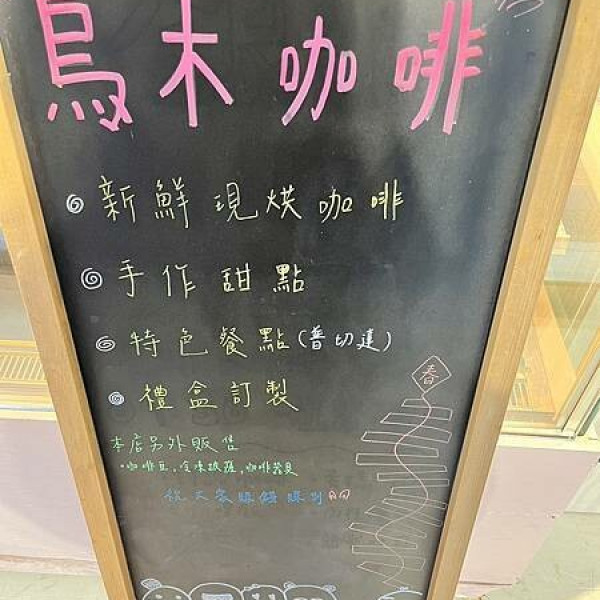 烏木咖啡
新鮮現烘咖啡
手作甜點
特色餐點(普切達)
禮盒訂製
本店另外販售
咖啡豆、冷凍披薩,咖啡器具
祝大家
春